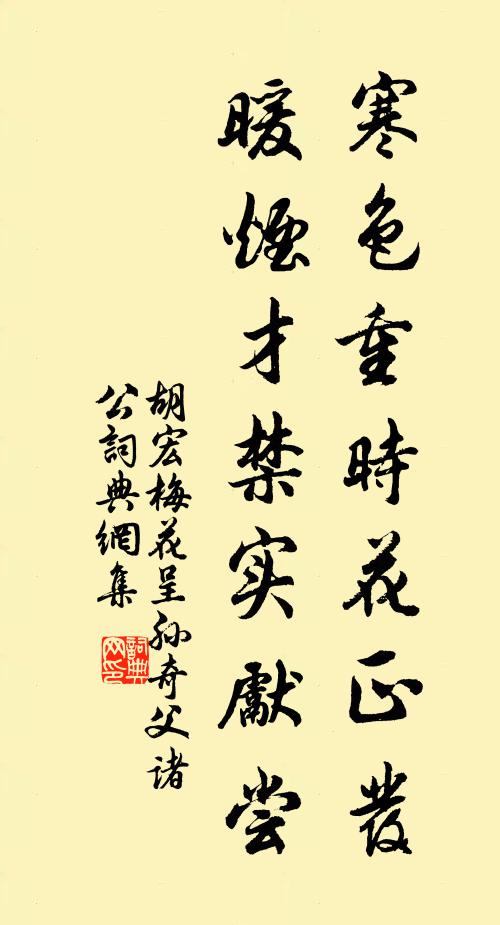 寒色重時花正發
暖煙才禁实獻尝
胡宏梅花呈孙奇父诸
公詞典網集
詞典網印